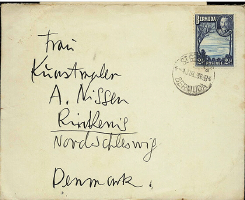 BERMUDA
Frau
Kunstmaler
A. Nissen
Rinkenis
Nordschleswig
Denmark.
BERMUDA